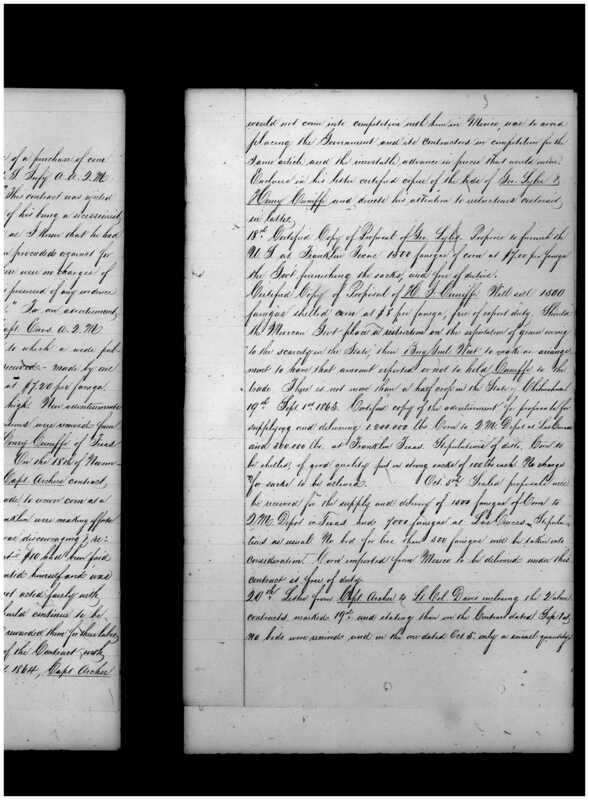 of a purchase of corn
A. A. Q. M.
This contract was
of his being a secessionist
as I knew that he had
proceeded against for
were no charges of
of any evidence
For an advertisement
Capt. A. Q. M
to which a wide pub-
received - made by one
at $7.20 per fanega
high. New advertisements
were received from
Henry Cuniffe of Texas
On the 18th of
Capt Archer contract,
corn at a
were making efforts
was discouraging &
$10, had been paid
himself and was
not acted fairly with
would continue to be
rewarded them for their labor,
of the Contract, with
1864, Capt Archer
would not come into competition with him in Mexico, was to avoid
placing the Government and its contractors in competition for the
same article and the inevitable advance in prices that would ensue.
Encloses in his letter certified copies of the bids of Geo. Lyles &
Henry Cuniffe and directs his attention to restrictions contained
in latter.
18th Certified Copy of Proposal of Geo. Lyles. Proposes to furnish the
U. S. at Franklin Texas 1500 fanegas of corn at $7.00 per fanega
the Govt furnishing the sacks, and free of duties.
Certified Copy of Proposal of H. J. Cuniffe Will sell 1500
fanegas shelled corn at $8 per fanega, free of export duty. Should
the Mexican Govt place a restriction on the exportation of grain owing
to the scarcity in the State, then Brig Genl West to make an arrange-
ment to have that amount exported or not to hold Cuniffe to the
bid. There is not more than a half crop in the State of Chihuahua
19th Sept 1st 1863. Certified copy of the advertisement for proposals for
supplying and delivering 1.200.000 lbs Corn to Q. M. Depot at Las Cruces
and 300.000 lbs. at Franklin Texas. Stipulations of ditto, Corn to
be shelled, of good quality, put in strong sacks of 100 lbs each. No charge
for sacks to be allowed. Oct 5th Sealed proposals will
be received for the supply and delivery of 1500 fanegas of Corn to
Q. M. Depot in Texas and 7000 fanegas at Las Cruces - Stipula-
tions as usual. No bid for less than 500 fanegas will be taken into
consideration. Corn imported from Mexico to be delivered under this
contract is free of duty.
20th Letter from Capt. Archer to Lt Col Davis inclosing the 2 above
contracts marked 19th and stating that on the Contract dated Sept 1st,
no bids were received, and in the one dated Oct 5. only a small quantity